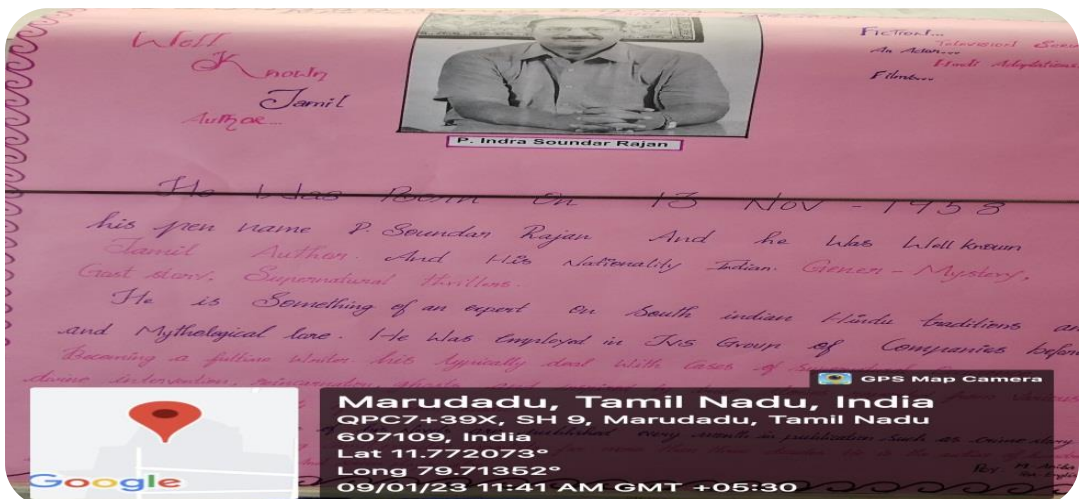 Well
Known
Tamil
Author...
Fiction...
Television
An Actor...
Hindi Adaptations
Films...
P. Indra Soundar Rajan
He Was Born On 13 Nov - 1958
his pen name P. Soundar Rajan And he Was Well known
Tamil Author. And His Nationality Indian. Gener - Mystery,
Gost story, Supernatural thrillers.
He is Something of an expert on South indian Hindu traditions an
and Mythological lore. He Was Employed in TVS Group of Companies before
Becoming a fulltime Writer his typically deal With Cases of
divine intervention, reincarnation, ghosts and
GPS Map Camera
published every month in publication Such as crime story
By
Marudadu, Tamil Nadu, India
QPC7+39X, SH 9, Marudadu, Tamil Nadu
607109, India
Lat 11.772073°
Long 79.71352°
09/01/23 11:41 AM GMT +05:30
Google